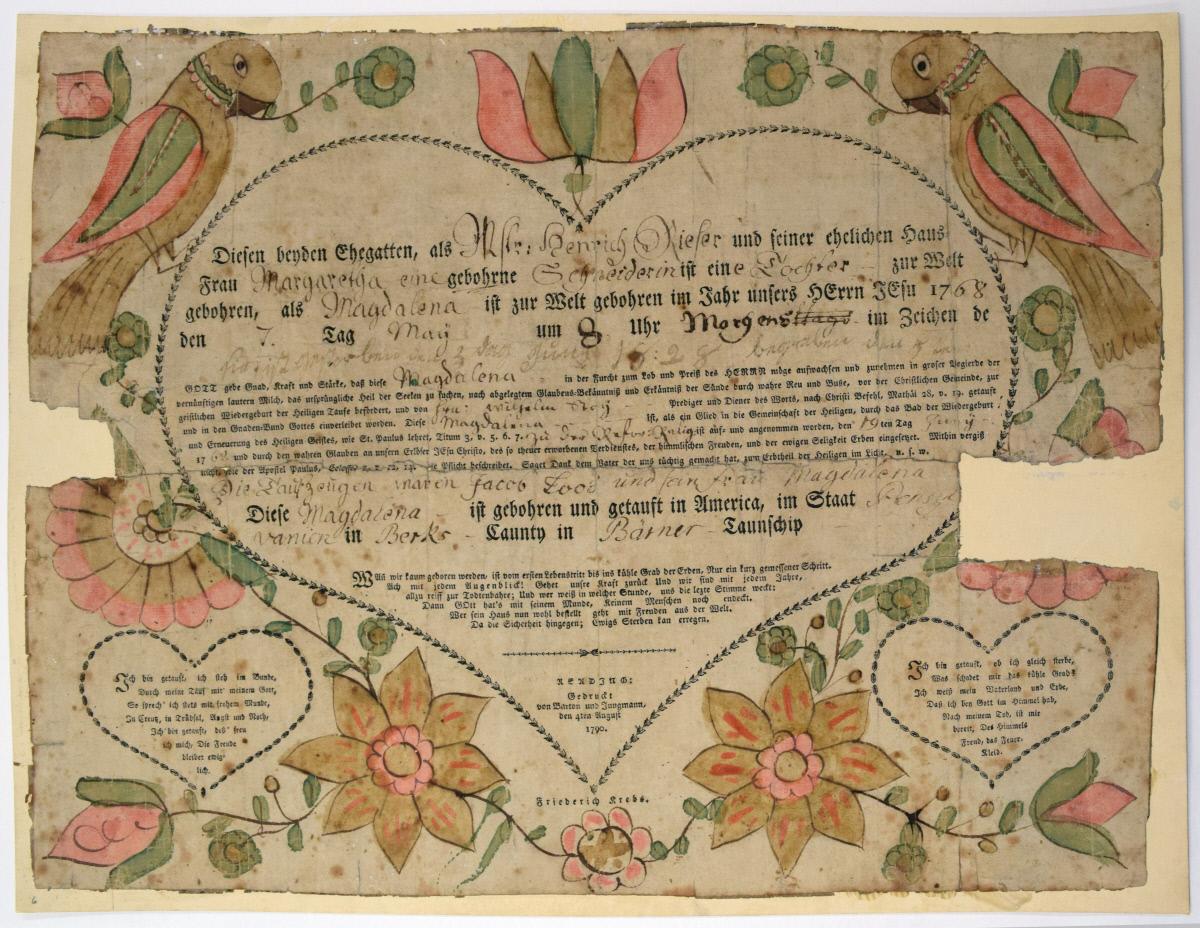 Diesen beyden Ehegatten, als Mstr: Henrich Rieser und seiner ehelichen Haus-
Frau Margaretha eine gebohrne Schneiderin ist eine Tochter zur Welt
gebohren, als Magdalena ist zur Welt gebohren im Jahr unsers HErrn JEsu 1768
den 7. Tag May um 8 Uhr Morgens im Zeichen de
begraben den
GOTT gebe Gnad, Kraft und Stärke, daß diese Magdalena in der Furcht zum Lob und Preiß des HERRN möge aufwachsen und zunehmen in groser Begierde der
vernünftigen lautern Milch, das ursprüngliche Heil der Seelen zu suchen, nach abgelegtem Glaubens-Bekäntniß und Erkäntniß der Sünde durch wahre Reu und Buße, vor der Christlichen Gemeinde, zur
geistlichen Wiedergeburt der Heiligen Taufe befördert, und von Wilhelm Prediger und Diener des Worts, nach Christi Befehl, Mathäi 28, v. 19. getauft
und in den Gnaden-Bund Gottes einverleibet worden. Diese Magdalena Ist, als ein Glied in die Gemeinschaft der Heiligen, durch das Bad der Wiedergeburt
und Erneuerung des Heiligen Geistes, wie St. Paulus lehret, Titum 3, v. 5. 6. 7. zu der Relig ist auf- und angenommen worden, den 19ten Tag Juny
1768 und durch den wahren Glauben an unsern Erlöser JEsu Christo, des so theuer erworbenen Verdienstes, der himmlischen Freuden, und der ewigen Seligkeit Erben eingesetzt. Mithin vergiß
nicht, wie der Apostel Paulus, die Pflicht beschreibet. Saget Dank dem Vater der uns tüchtig gemacht hat, zum Erbtheil der Heiligen im Licht, u. s. w.
Die Taufzeugen waren Jacob und sein frau Magdalena
Diese Magdalena ist gebohren und getauft in America, im Staat Pensyl
vanien in Berks Caunty in Bärner Taunschip
Wañ wir kaum geboren werden, ist vom ersten Lebenstritt bis ins kühle Grab der Erden, Nur ein kurz gemessener Schritt.
Ach mit jedem Augenblick! Gehet unsre Kraft zurück Und wir sind mit jedem Jahre,
allzu reiff zur Todtenbahre; Und wer weiß in welcher Stunde, uns die lezte Stimme weckt:
Dann GOtt hat's mit seinem Munde, Keinem Menschen noch endeckt.
Wer sein Haus nun wohl bestellt geht mit Freuden aus der Welt.
Da die Sicherheit hingegen; Ewigs Sterben kan erregen.
Ich bin getauft, ich steh im Bunde,
Durch meine Tauf mit meinem Gott,
So sprech' ich stets mit frohem Munde,
In Creutz, in Trübsal, Angst und Noth,
Ich bin getauft, deß' freu
ich mich, Die Freude
bleibet ewig-
lich.
READING:
Gedruckt
von Barton und Jungmann,
den 4ten August
1790.
Friederich Krebs.
Ich bin getauft, ob ich gleich sterbe,
Was schadet mir das kühle Grab?
Ich weiß mein Vaterland und Erbe,
Das ich bey Gott im Himmel hab,
Nach meinem Tod, ist mir
bereit, Des Himmels
Freud, das Feuer-
Kleid.